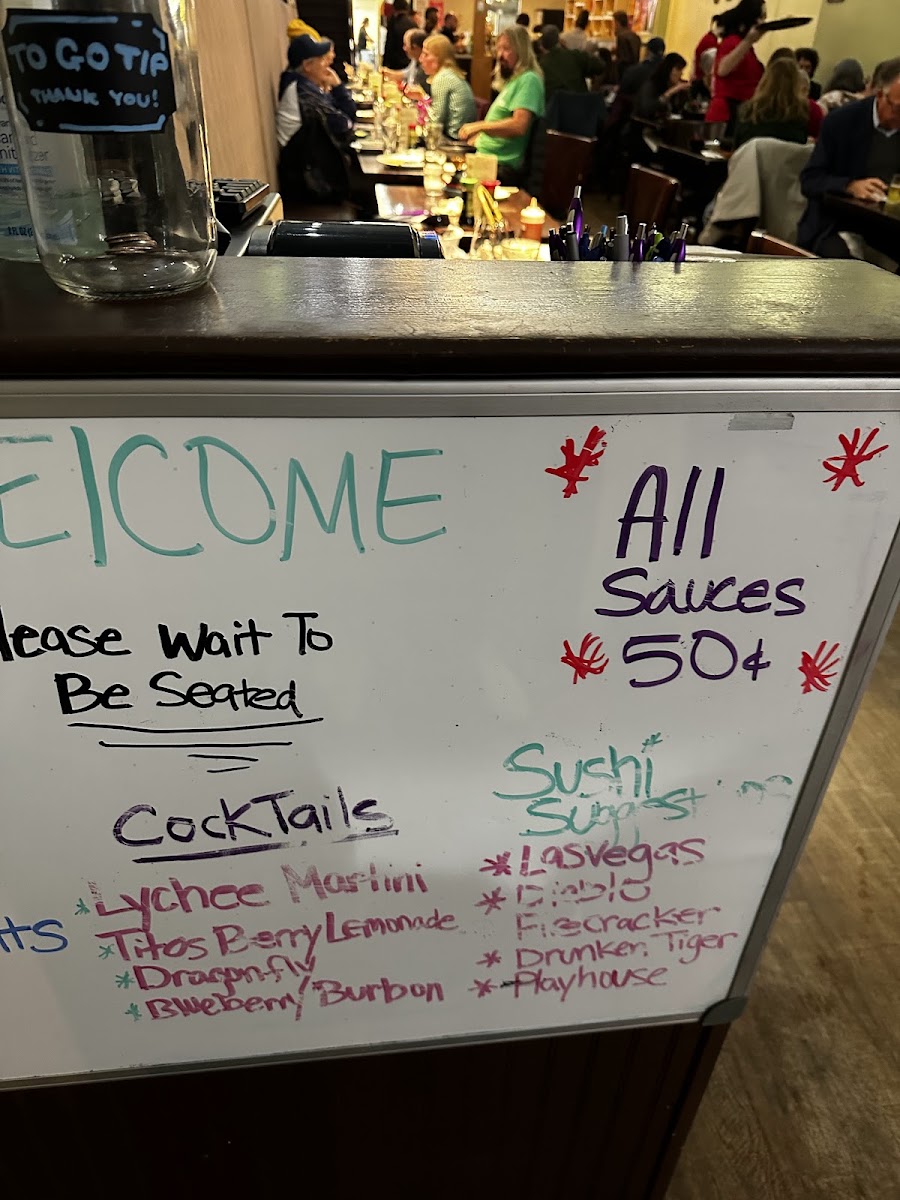 TO GO TIP
THANK YOU!
ELCOME
lease Wait To
Be Seated
All
Sauces
50¢
Cocktails
Lychee Martini
Titos Berry Lemonade
Dragon-fly
Blueberry/Burbon
Sushi
Suggest
Las Vegas
Diablo
Firecracker
Drunken Tiger
Playhouse